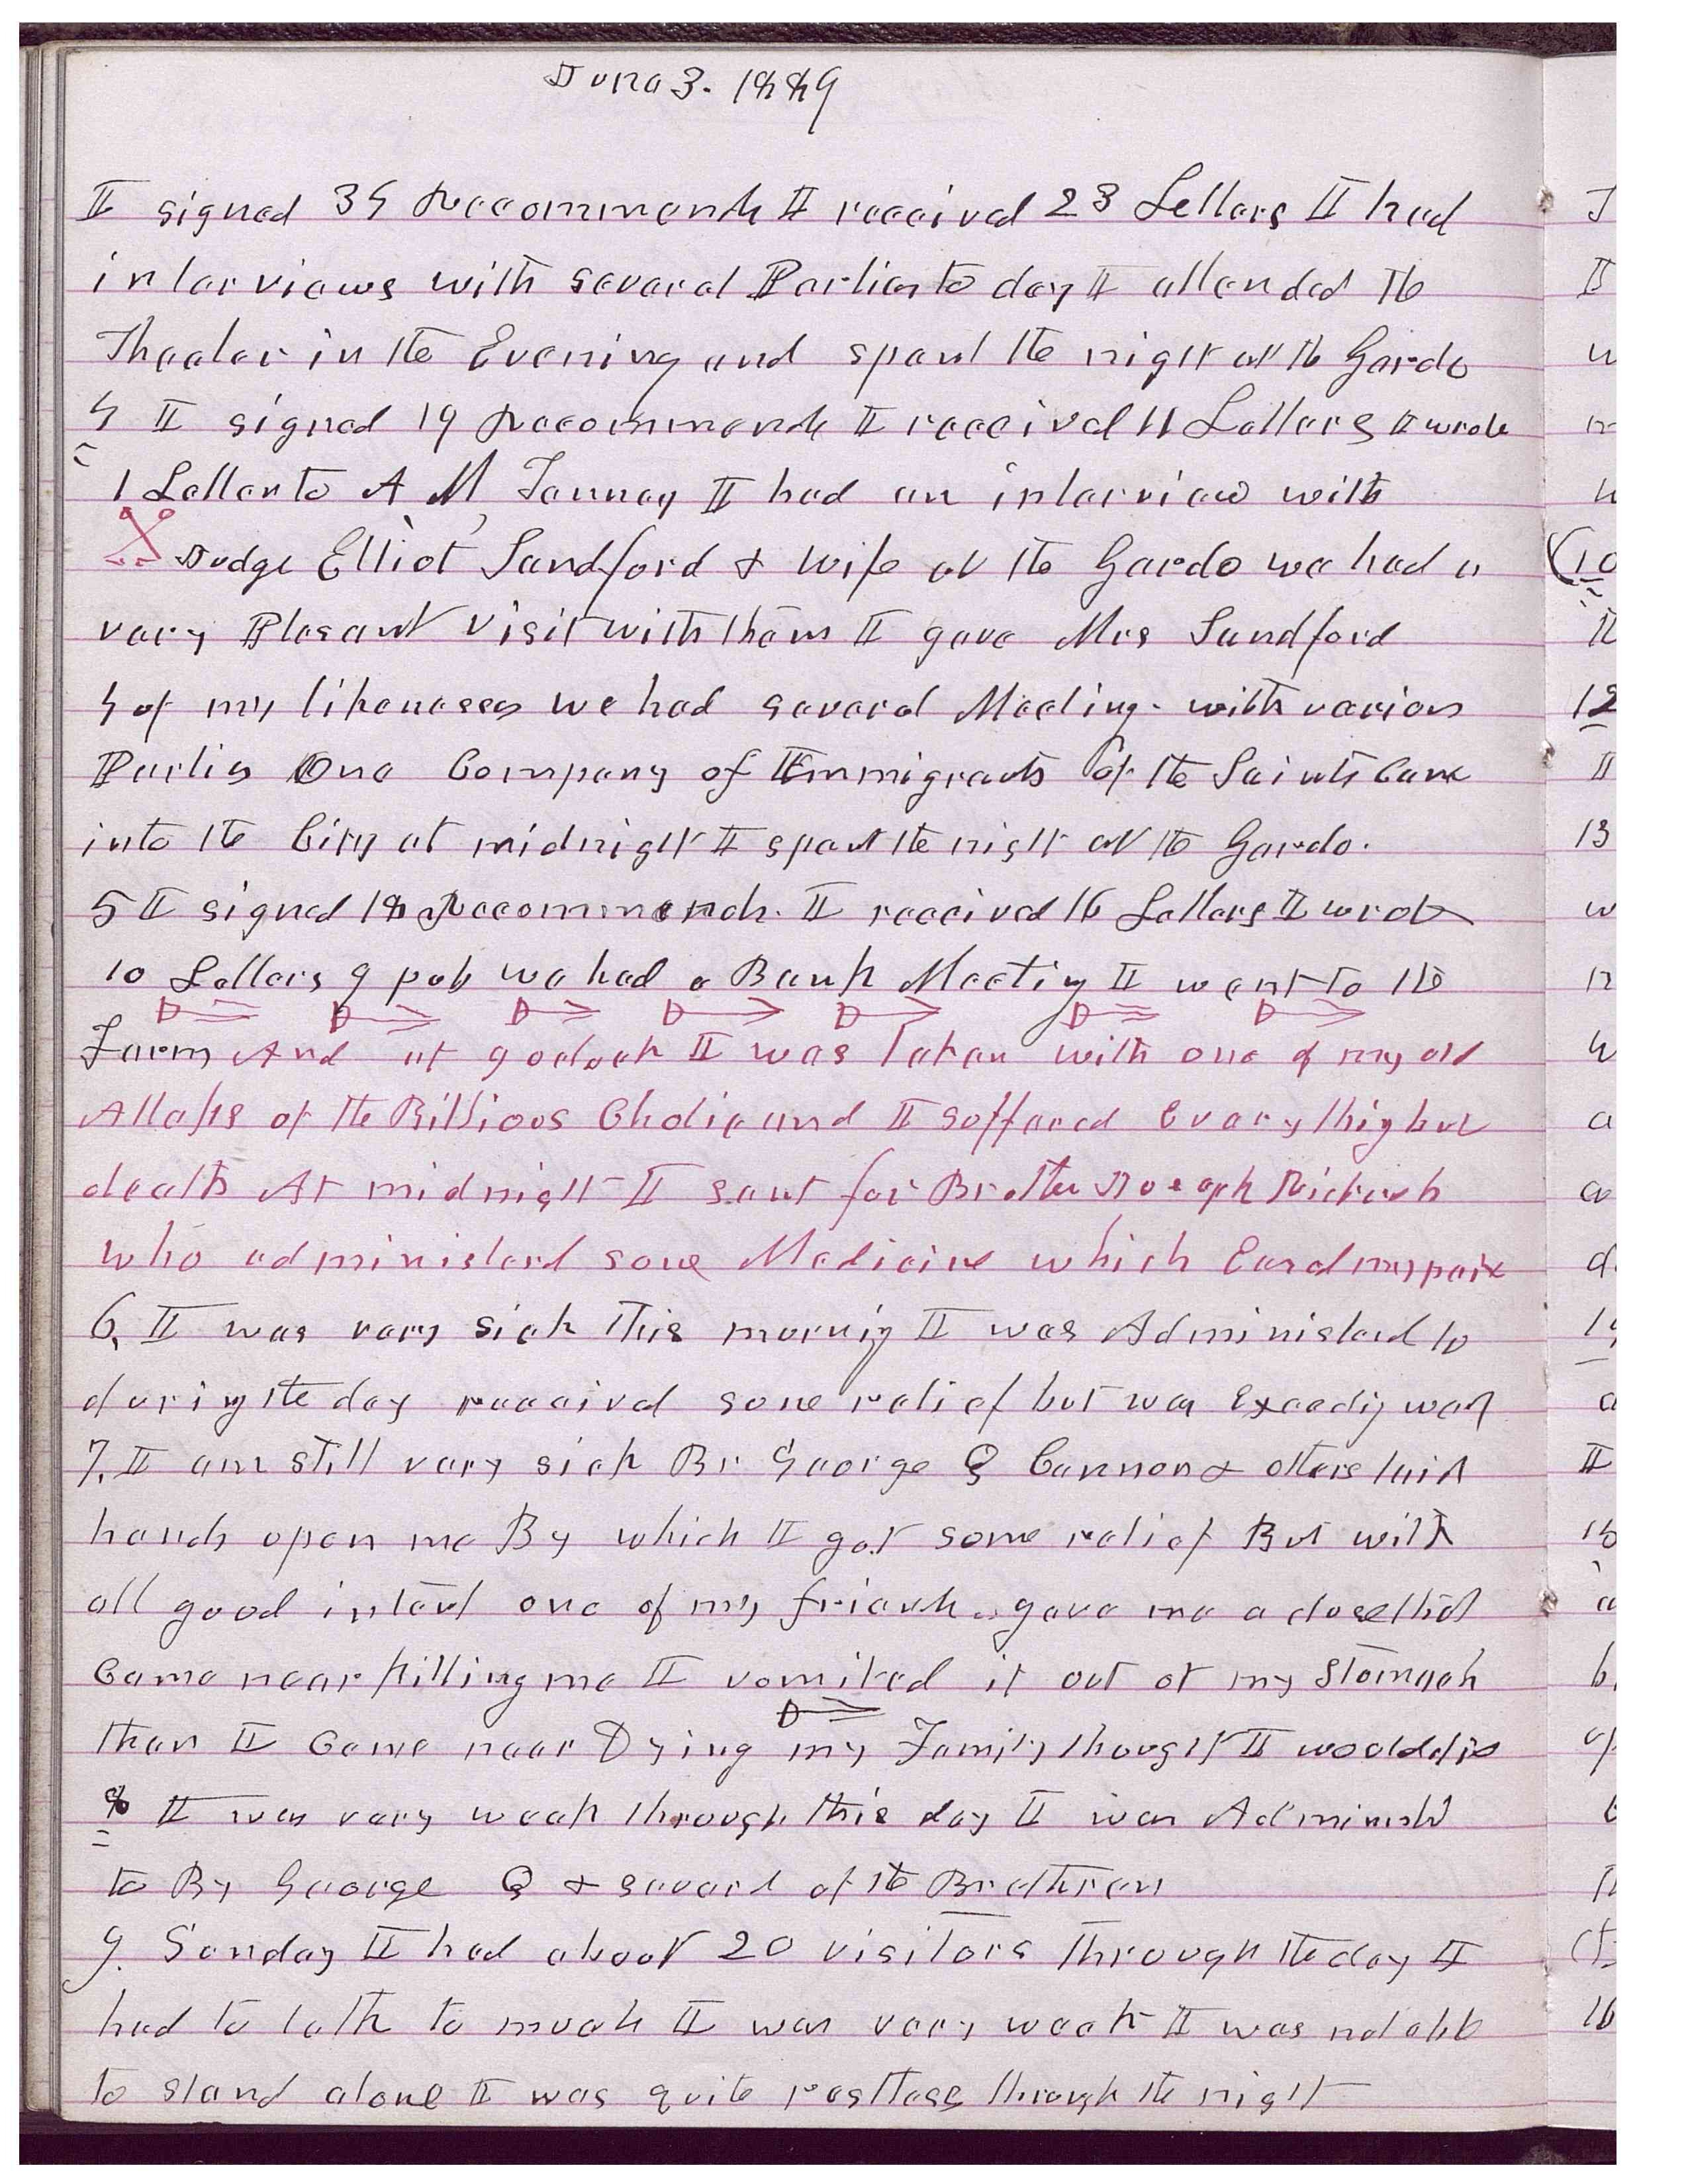 June 3. 1889
I signed 34 Recommends I received 23 Letters I had
interviews with several Parties to day I attended the
Theater in the Evening and spent the night at the Gardo
4 I signed 19 Recommends I received 11 Letters I wrote
1 Letter to A M, I had an interview with
Judge Elliot Sandford & wife at the Gardo we had a
very Plesant visit with them I gave Mrs Sandford
4 of my likenesses we had several Meeting with various
Parties One Company of Emmigrants of the Saints Came
into the City at midnight I spent the night at the Gardo.
5 I signed 18 Recommends. I received 16 Letters I wrote
10 Letters 9 pub we had a Bank Meeting I went to the
Farm And at 9 oclock I was taken with one of my old
Attaks of the Billious Cholic and I suffered Every thig but
death At midnight I sent for Brother Joseph Richards
who administerd some Medicine which Easd my pain
6, I was very sick This mornig I was Administerd to
during the day received some relief but was Exceedig weak
7, I am still very sick Br George Q Cannon & others laid
hands upon me By which I got some relief But with
all good intent one of my friends gave me a dose that
Came near killing me I vomited it out of my Stomach
then I Came near Dying my Family thought I would die
8 I was very weak through this day I was Administerd
to By George Q & several of the Brethren
9. Sunday I had about 20 visitors through the day I
had to talk to much I was very weak I was not able
to stand alone I was quite restless through the night